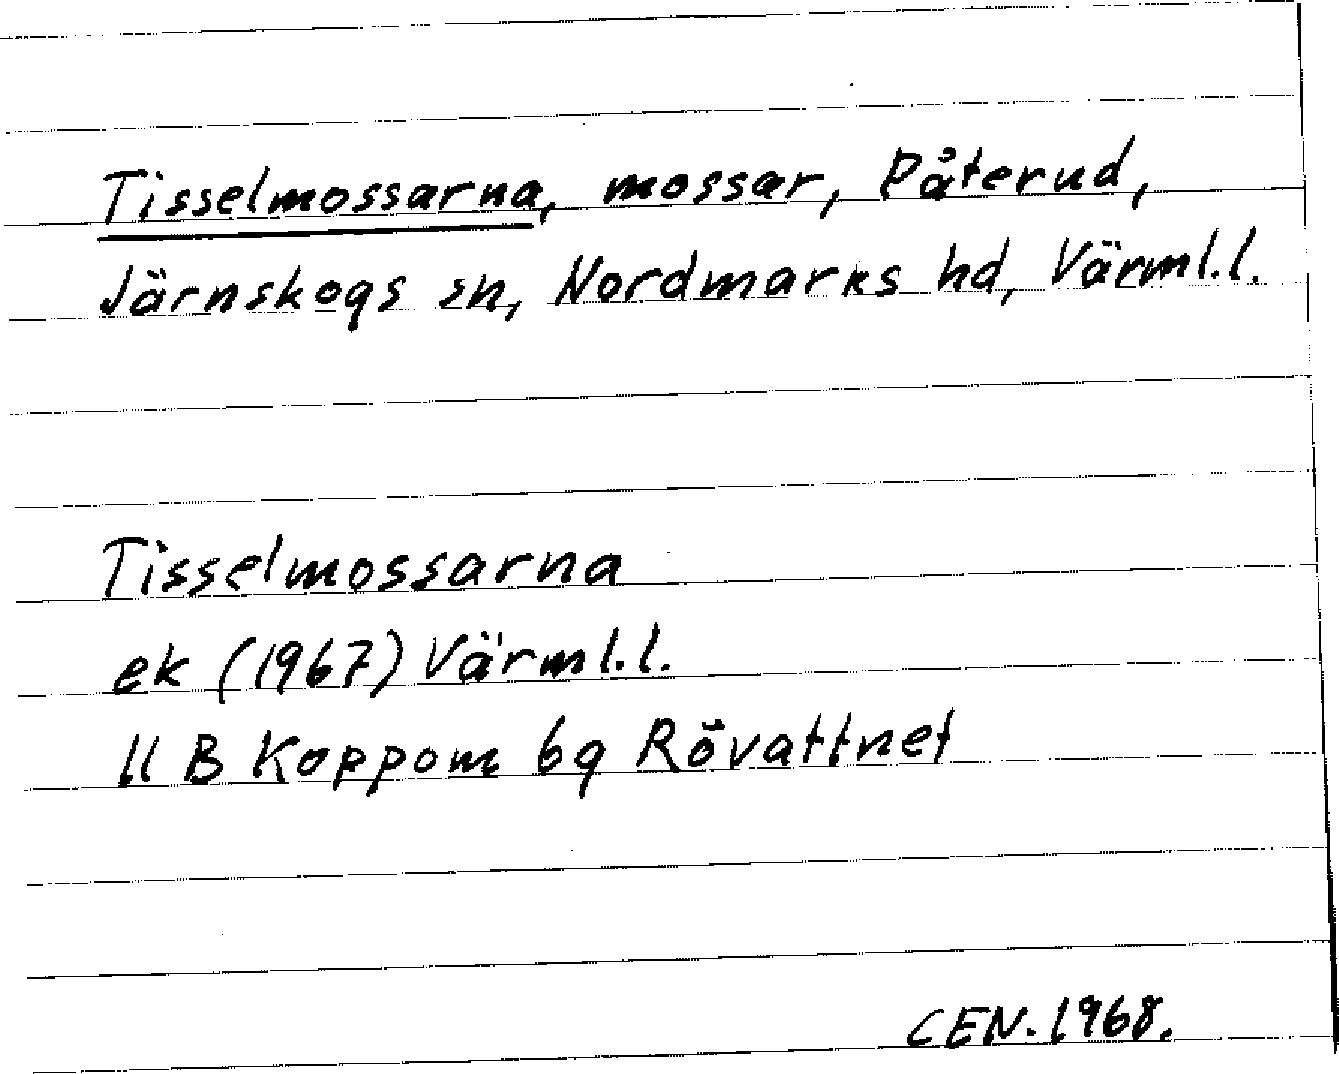 Tisselmossarna, mossar, Påterud,
Järnskogs sn, Nordmarks hd, Värml.l.
Tisselmossarna
ek (1967) Värml.l.
11 B Koppom 6g Rövattnet
CEN. 1968.